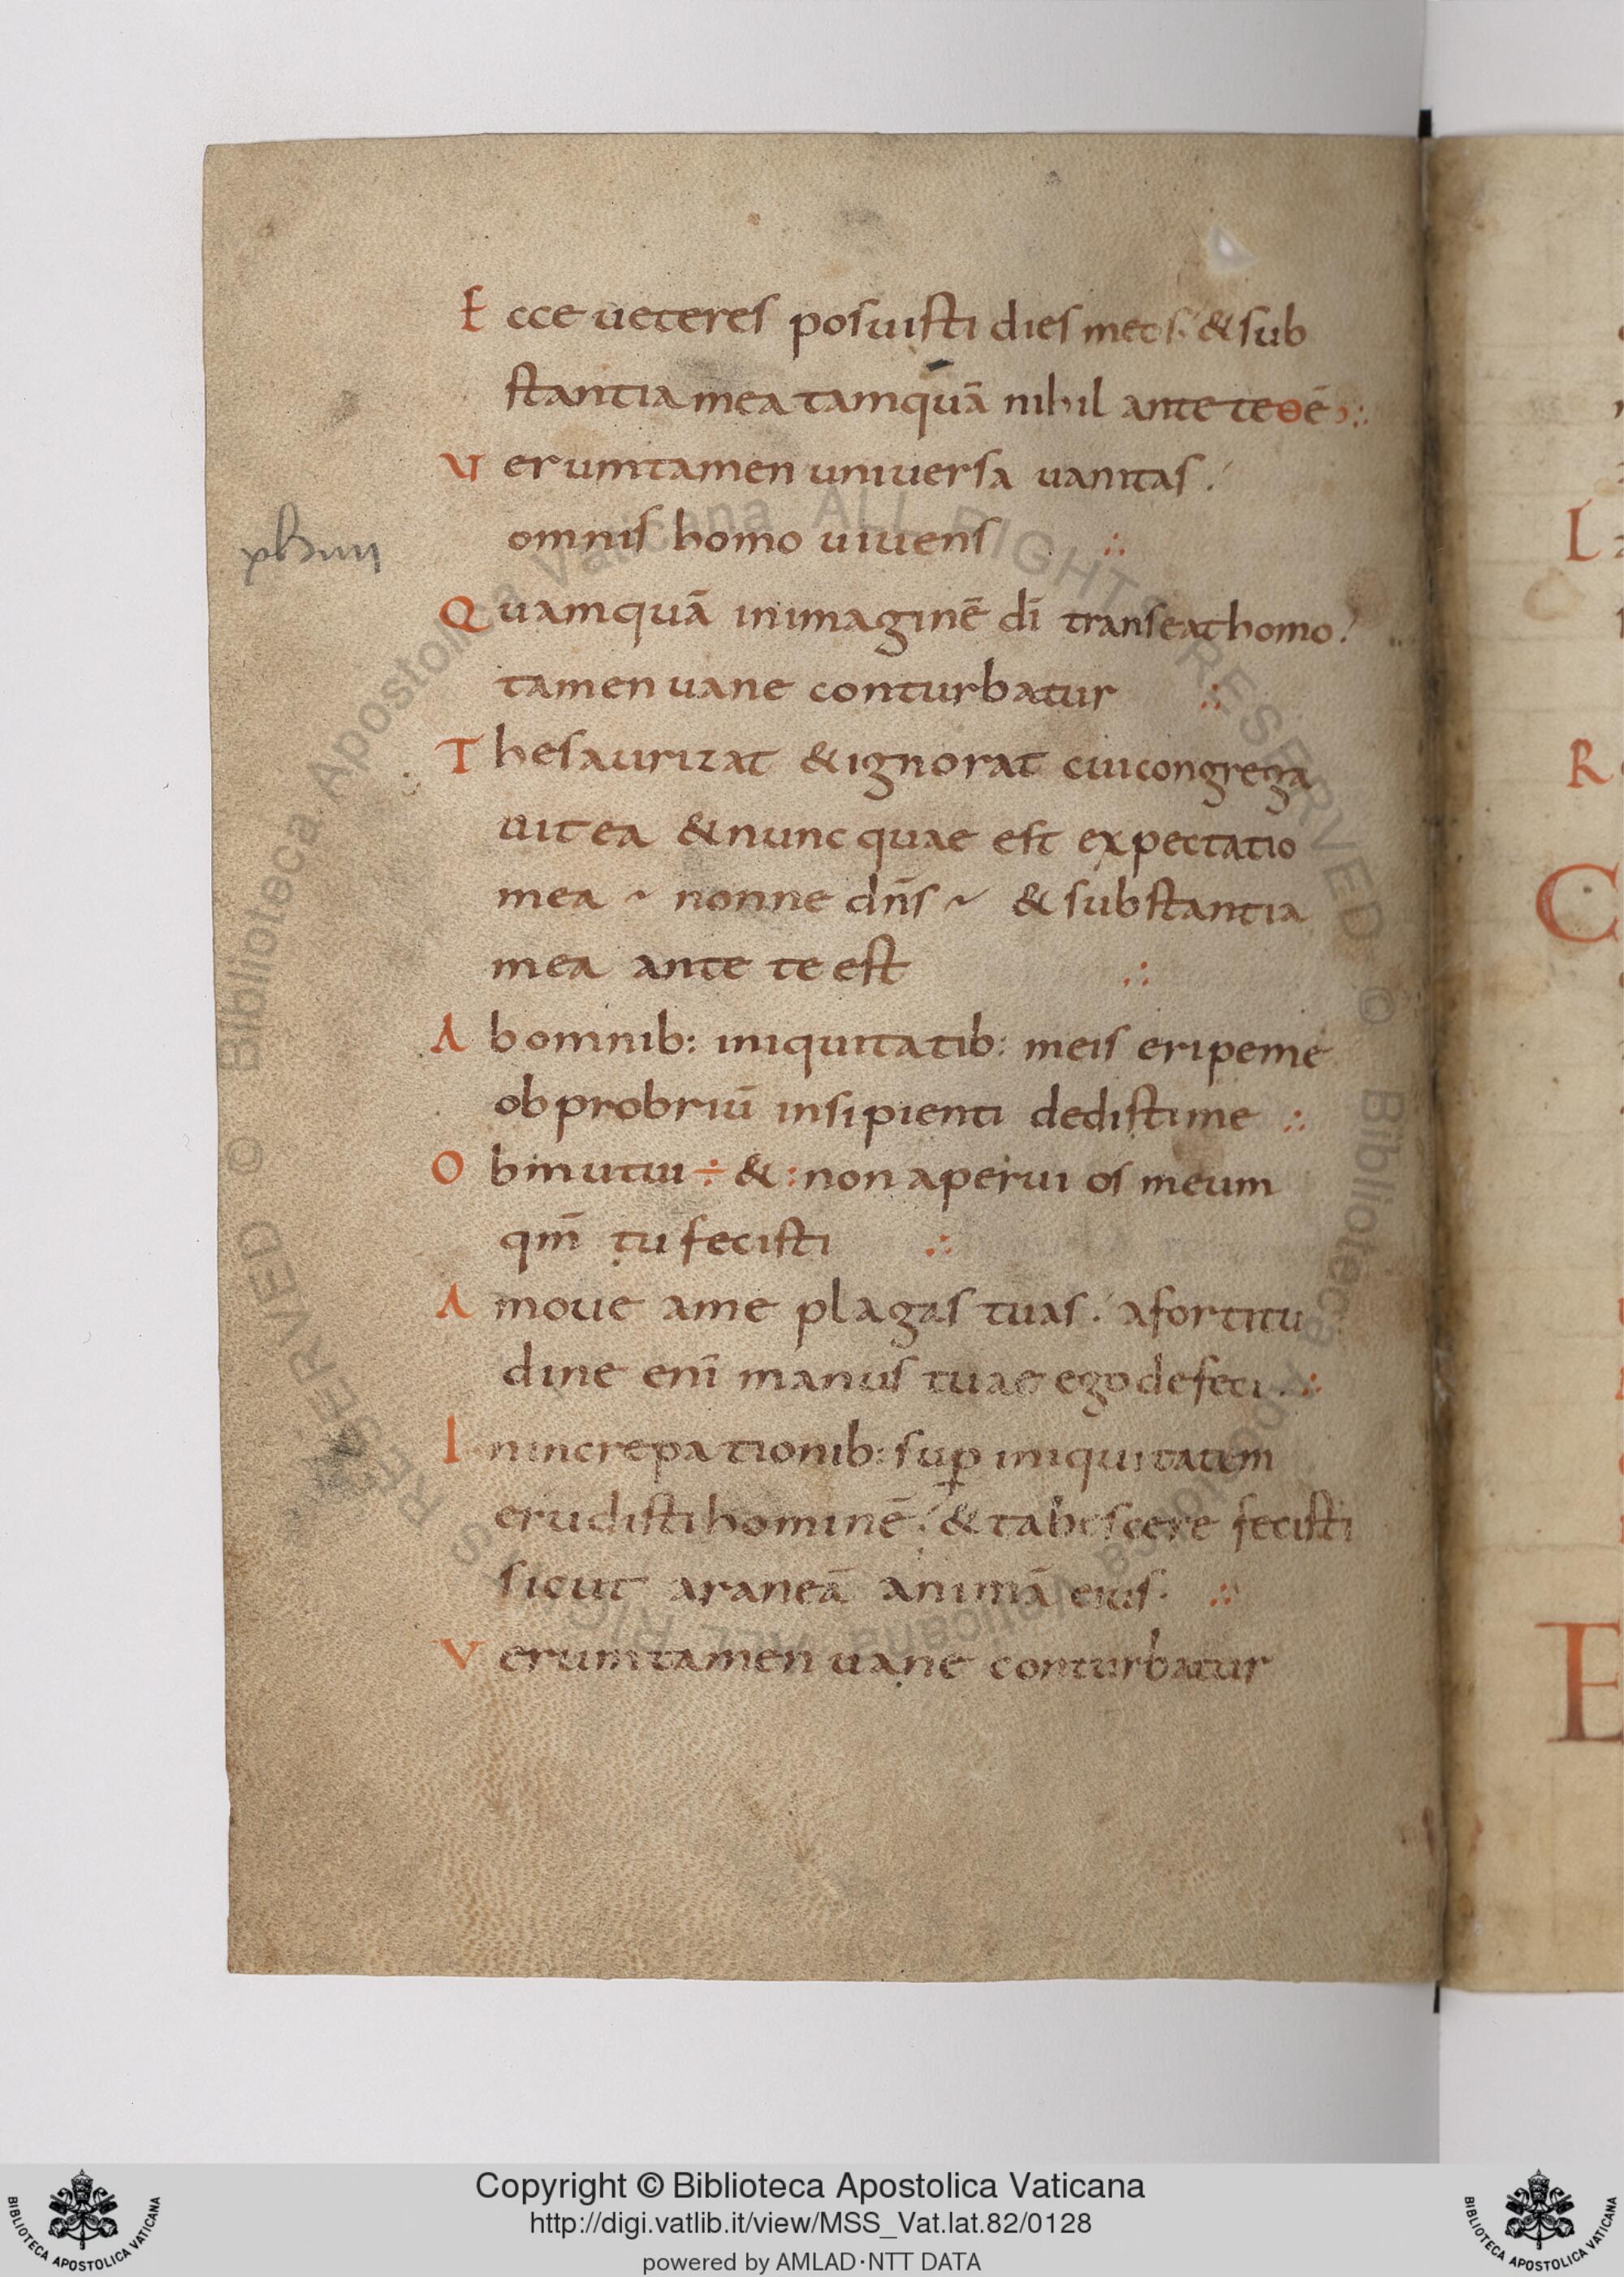 Ecce ueteres posuisti dies meos. & sub
stantia mea tamquā nihil ante te ē
Uerumtamen uniuersa uanitas.
omnis homo uiuens
Quamquā in imaginē dī transeat homo.
tamen uane conturbatur
Thesaurizat & ignorat cui congrega
uit ea & nunc quae est expectatio
mea ~ nonne dn̄s ~ & substantia
mea ante te est
Ab omnib: iniquitatib: meis eripe me
obprobriū insipienti dedisti me
Obmutui ÷ & : non aperui os meum
qm̄ tu fecisti
Amoue a me plagas tuas. a fortitu
dine enī manus tuae ego defeci.
In increpationib: sup̱ iniquitatem
erudisti hominē. & tabescere fecisti
sicut araneā animā eius.
Verumtamen uane conturbatur
L
R
C
E
Copyright © Biblioteca Apostolica Vaticana
http://digi.vatlib.it/view/MSS_Vat.lat.82/0128
powered by AMLAD·NTT DATA
BIBLIOTECA APOSTOLICA VATICANA
BIBLIOTECA APOSTOLICA VATICANA
© Biblioteca Apostolica Vaticana ALL RIGHTS RESERVED © Biblioteca Apostolica Vaticana ALL RIGHTS RESERVED